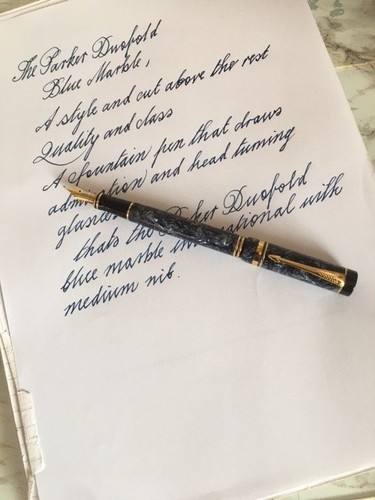 The Parker Duofold
Blue Marble,
A style and cut above the rest
Quality and class
A fountain pen that draws
admiration and head turning
thats the Parker Duofold
blue marble international with
medium nib.